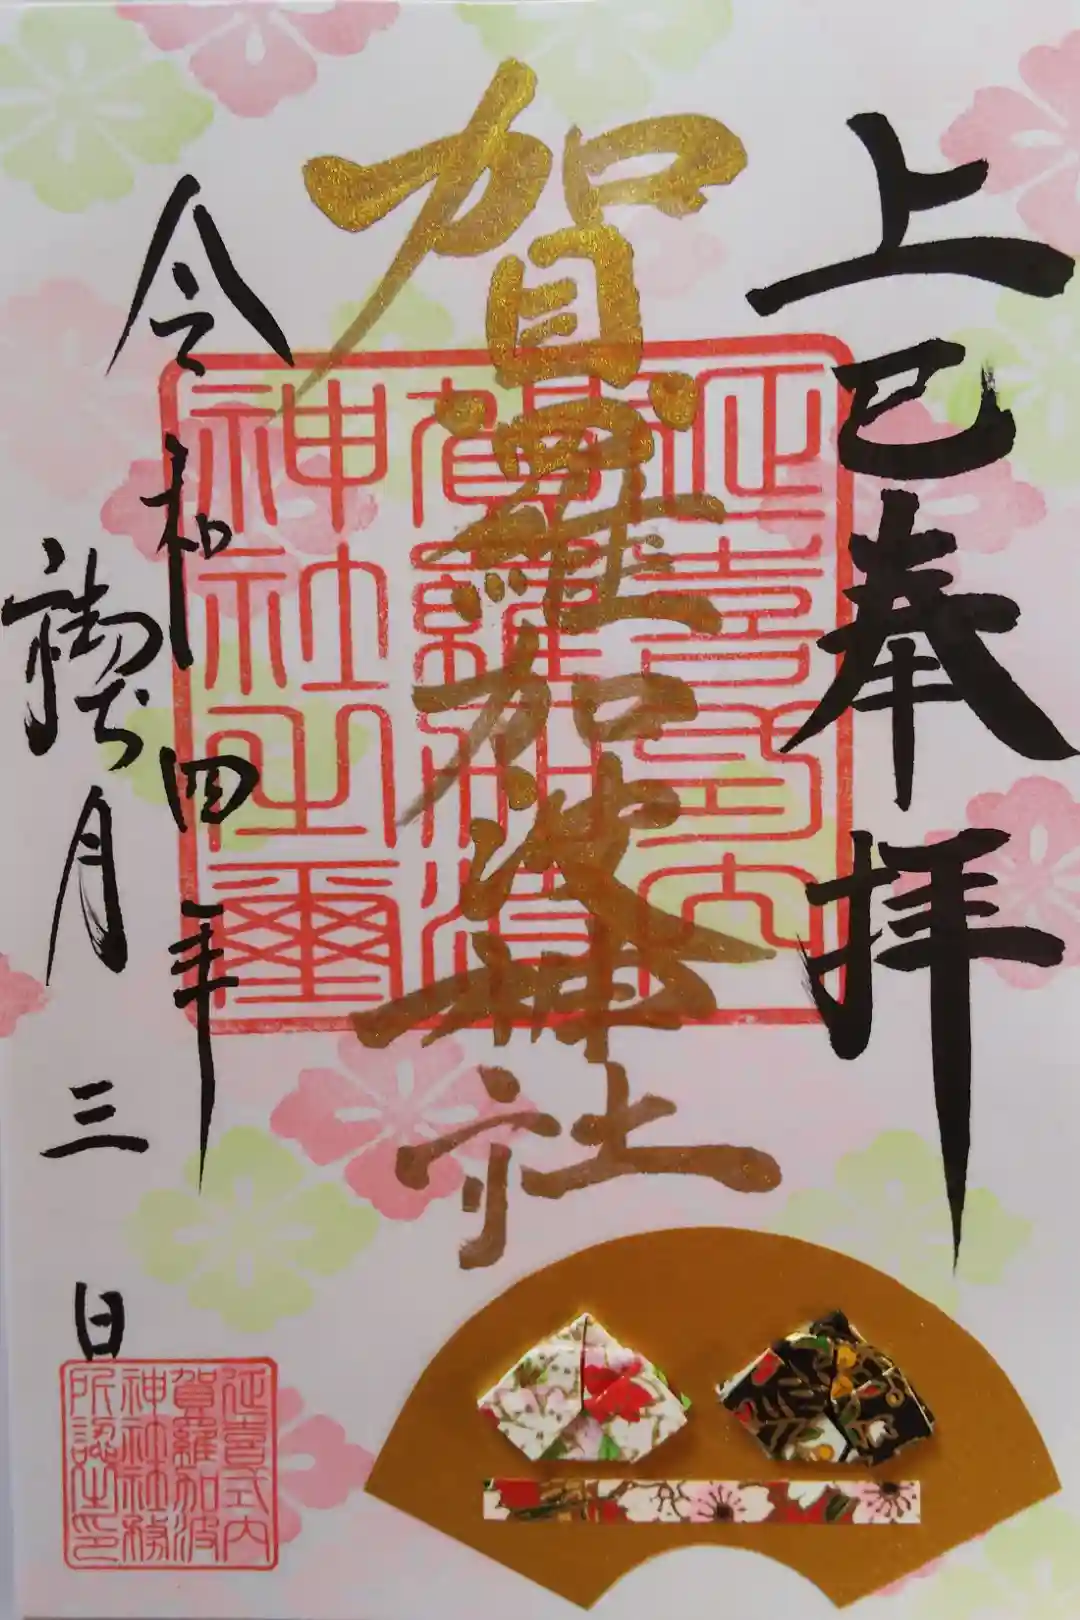 上巳奉拝
賀羅加波神社
令和四年
月三日
延喜式内
賀羅加波
神社之璽
延喜式内
賀羅加波
神社社務
所認之印